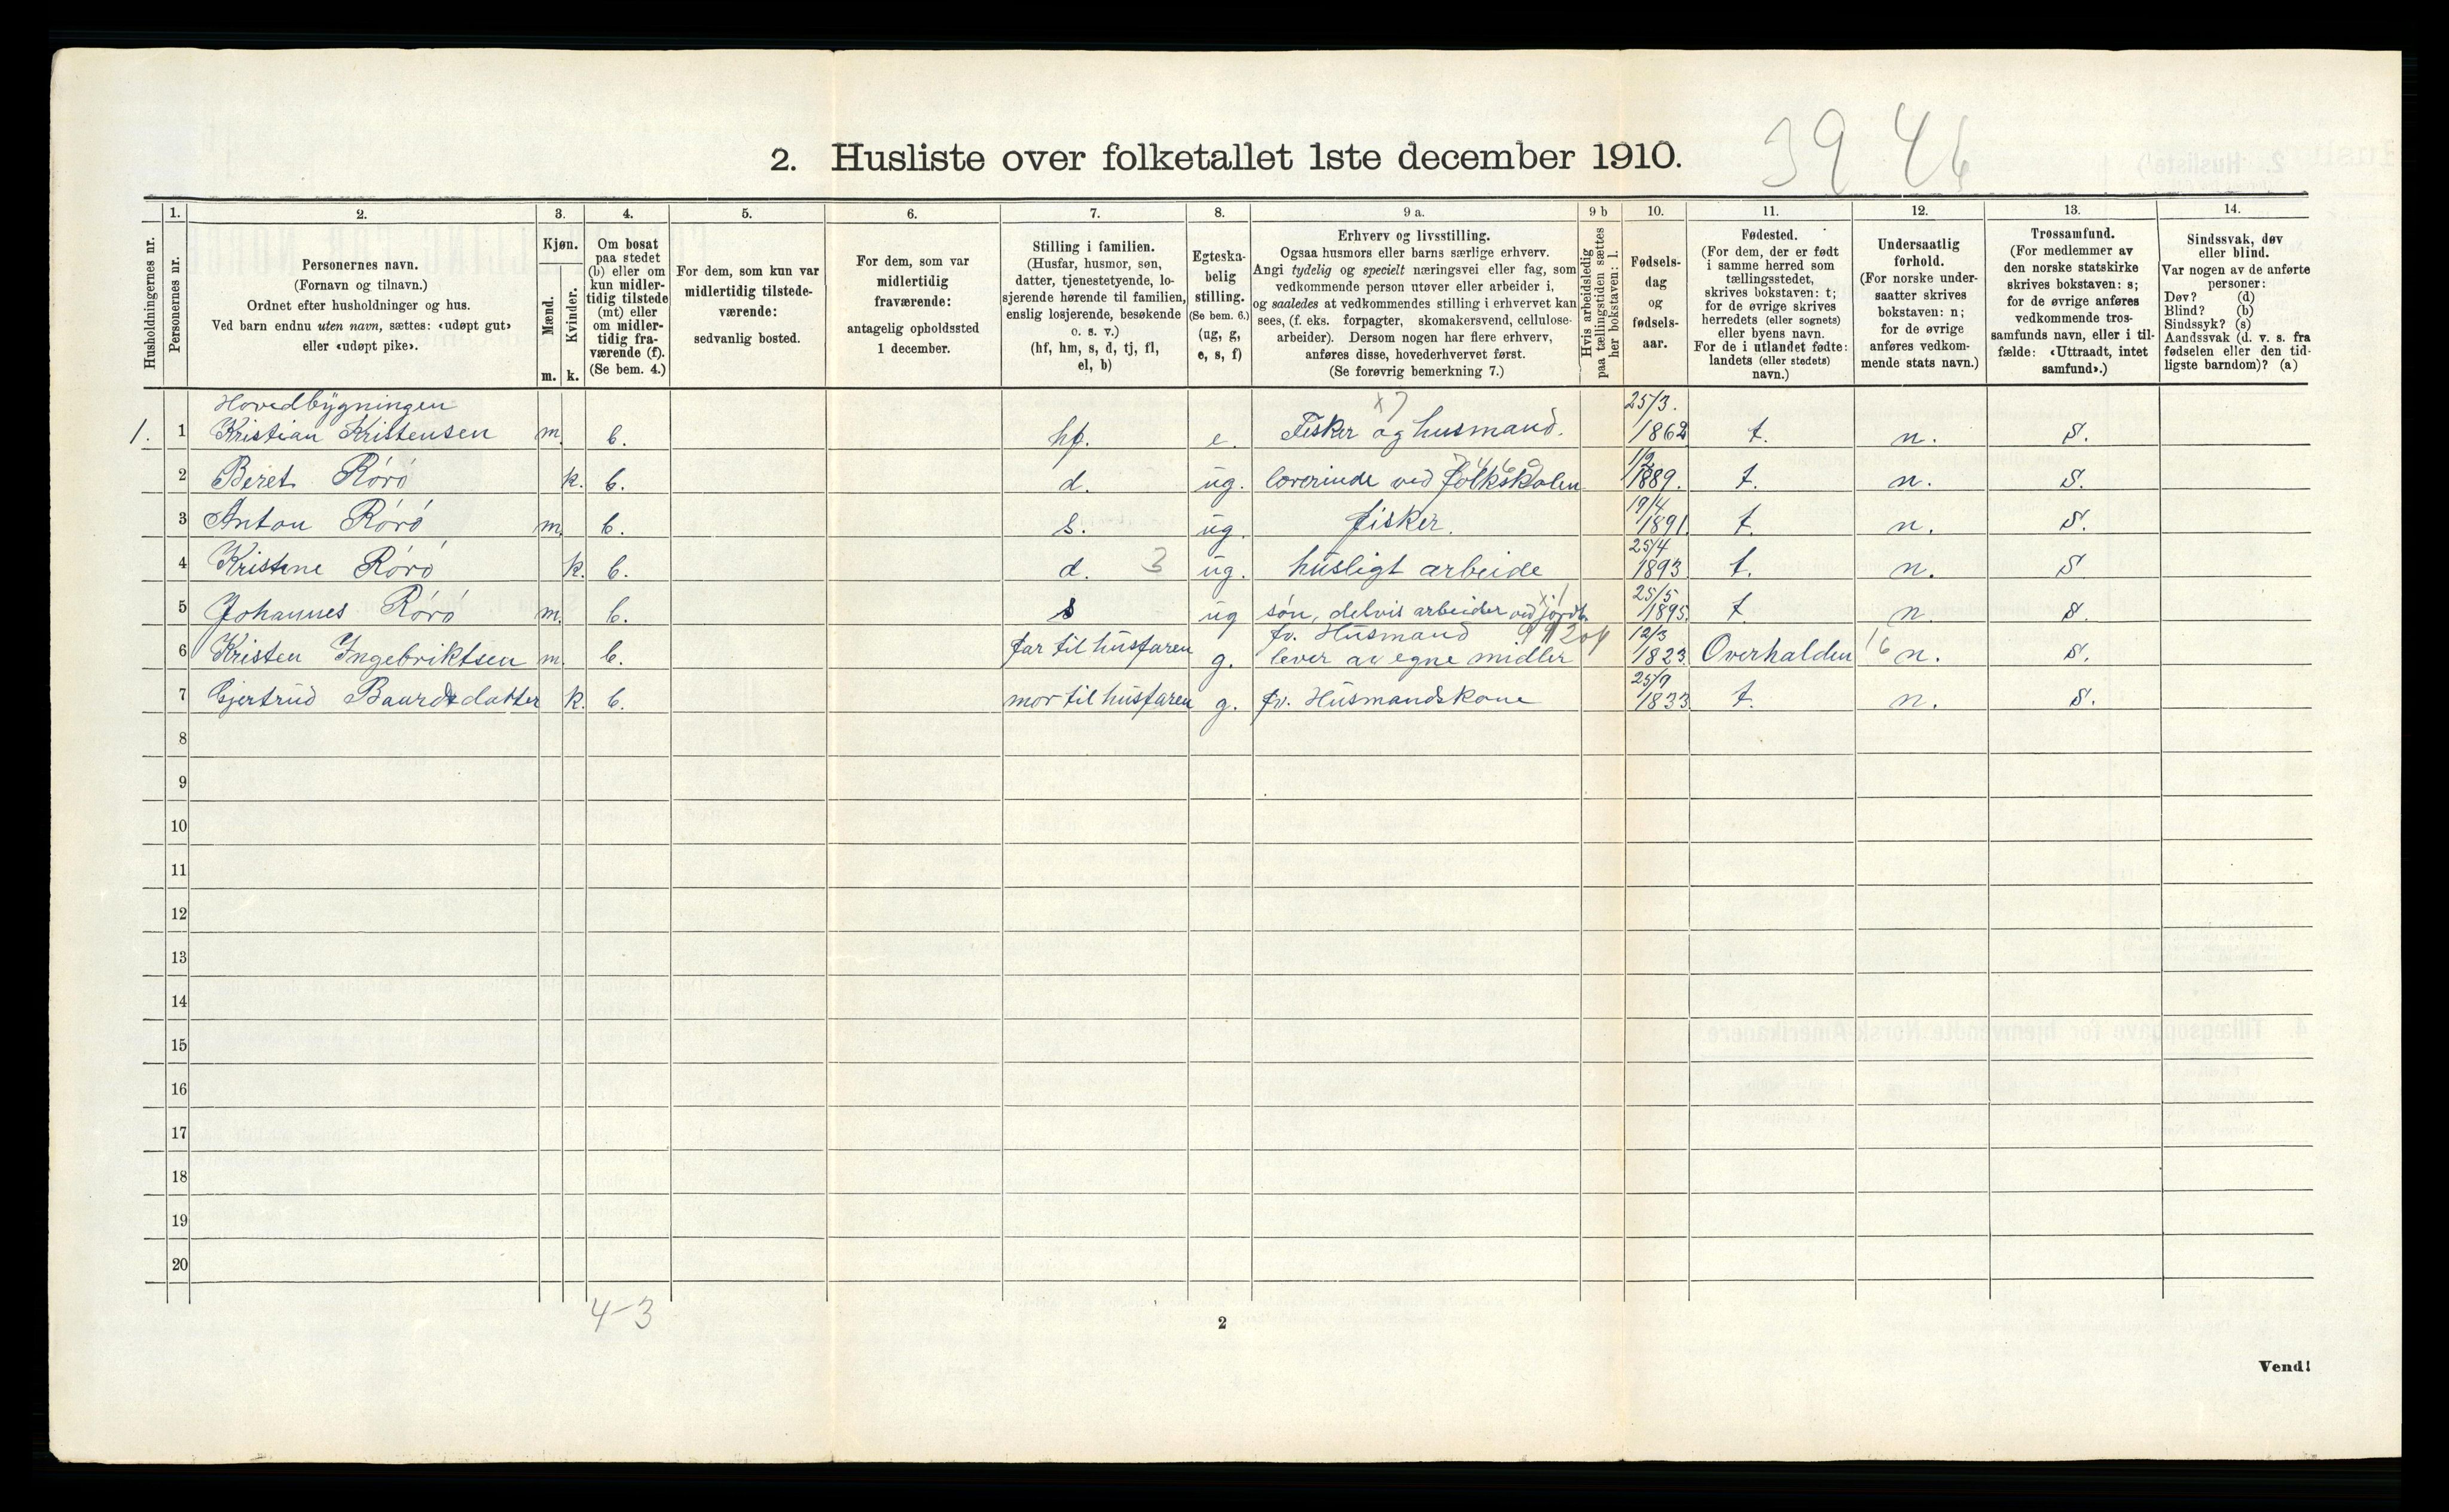 2. Husliste over folketallet 1ste december 1910.
39 46
Husholdningernes nr.
1.
Personernes nr.
2.
Personernes navn.
(Fornavn og tilnavn.)
Ordnet efter husholdninger og hus.
Ved barn endnu uten navn, sættes: «udøpt gut»
eller «udøpt pike».
3.
Kjøn.
Mænd.
Kvinder.
m. k.
4.
Om bosat
paa stedet
(b) eller om
kun midler-
tidig tilstede
(mt) eller
om midler-
tidig fra-
værende (f).
(Se bem. 4.)
5.
For dem, som kun var
midlertidig tilstede-
værende:
sedvanlig bosted.
6.
For dem, som var
midlertidig
fraværende:
antagelig opholdssted
1 december.
7.
Stilling i familien.
(Husfar, husmor, søn,
datter, tjenestetyende, lo-
sjerende hørende til familien,
enslig losjerende, besøkende
o. s. v.)
(hf, hm, s, d, tj, fl,
el, b)
8.
Egteska-
belig
stilling.
(Se bem. 6.)
(ug, g,
e, s, f)
9 a.
Erhverv og livsstilling.
Ogsaa husmors eller barns særlige erhverv.
Angi tydelig og specielt næringsvei eller fag, som
vedkommende person utøver eller arbeider i,
og saaledes at vedkommendes stilling i erhvervet kan
sees, (f. eks. forpagter, skomakersvend, cellulose-
arbeider). Dersom nogen har flere erhverv,
anføres disse, hovederhvervet først.
(Se forøvrig bemerkning 7.)
9 b
Hvis arbeidsledig
paa tællingstiden sættes
her bokstaven: l.
10.
Fødsels-
dag
og
fødsels-
aar.
11.
Fødested.
(For dem, der er født
i samme herred som
tællingsstedet,
skrives bokstaven: t;
for de øvrige skrives
herredets (eller sognets)
eller byens navn.
For de i utlandet fødte:
landets (eller stedets)
navn.)
12.
Undersaatlig
forhold.
(For norske under-
saatter skrives
bokstaven: n;
for de øvrige
anføres vedkom-
mende stats navn.)
13.
Trossamfund.
(For medlemmer av
den norske statskirke
skrives bokstaven: s;
for de øvrige anføres
vedkommende tros-
samfunds navn, eller i til-
fælde: «Uttraadt, intet
samfund».)
14.
Sindssvak, døv
eller blind.
Var nogen av de anførte
personer:
Døv? (d)
Blind? (b)
Sindssyk? (s)
Aandssvak (d. v. s. fra
fødselen eller den tid-
ligste barndom)? (a)
Hovedbygningen x7 25/3.
1. 1 Kristian Kristensen m. b. hf. e. Fisker og husmand. 1862 t. n. S.
2 Beret Rörö k. b. d. ug. lærerinde ved folkskolen 1/2 1889. t. n. S.
3 Anton Rörö m. b. s. ug. fisker. 19/4 1891. t. n. S.
4 Kristine Rörö k. b. d. 3 ug. husligt arbeide 25/4 1893. t. n. S
5 Johannes Rörö m. b. s ug søn, delvis arbeider ved jordb. 25/5 1895. t. n. S.
6 Kristen Ingebriktsen m. b. far til husfaren g. fv. Husmand lever av egne midler 12/3 1823. Overhalden 16 n. S.
7 Gjertrud Baardsdatter k. b. mor til husfaren g. fv. Husmandskone 25/9 1833. t. n. S.
8
9
10
11
12
13
14
15
16
17
18
19
20
4-3
2
Vend!